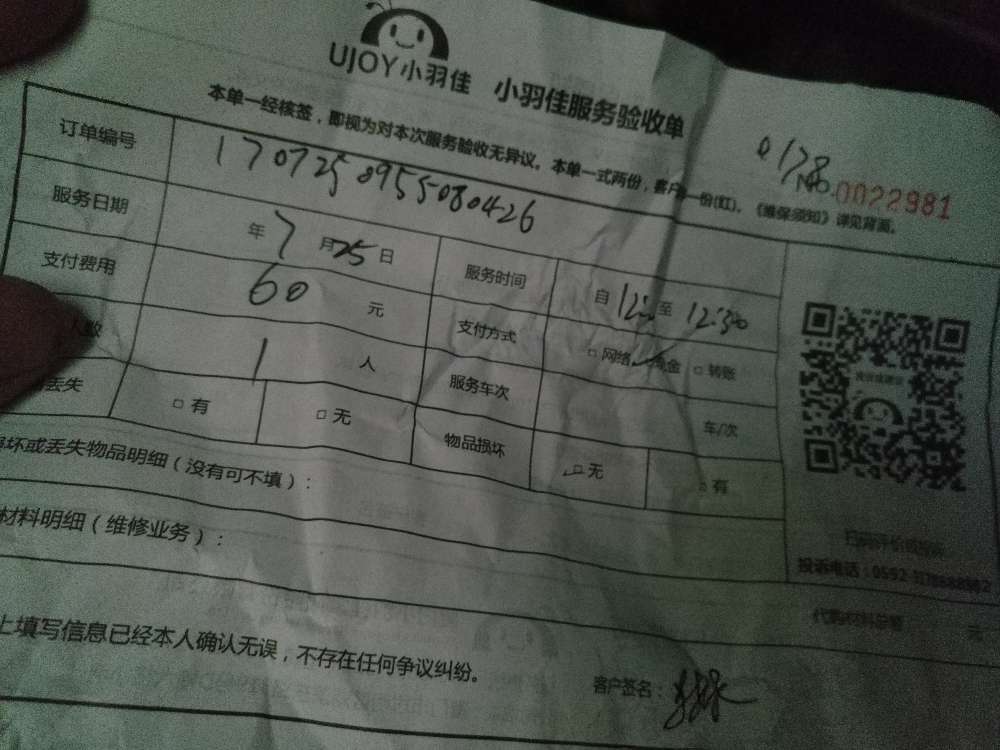 UJOY小羽佳 小羽佳服务验收单
0178
No.0022981
本单一经核签，即视为对本次服务验收无异议。本单一式两份，客户一份(红)。《维保须知》详见背面。
订单编号 1707250955080426
服务日期 年7月25日 服务时间 自12: 至12:30
支付费用 60元 支付方式 □网络 现金 □转账
人数 1人 服务车次 车/次
丢失 □有 □无 物品损坏 □无 □有
坏或丢失物品明细（没有可不填）：
材料明细（维修业务）：
投诉电话：0592-
上填写信息已经本人确认无误，不存在任何争议纠纷。
客户签名：